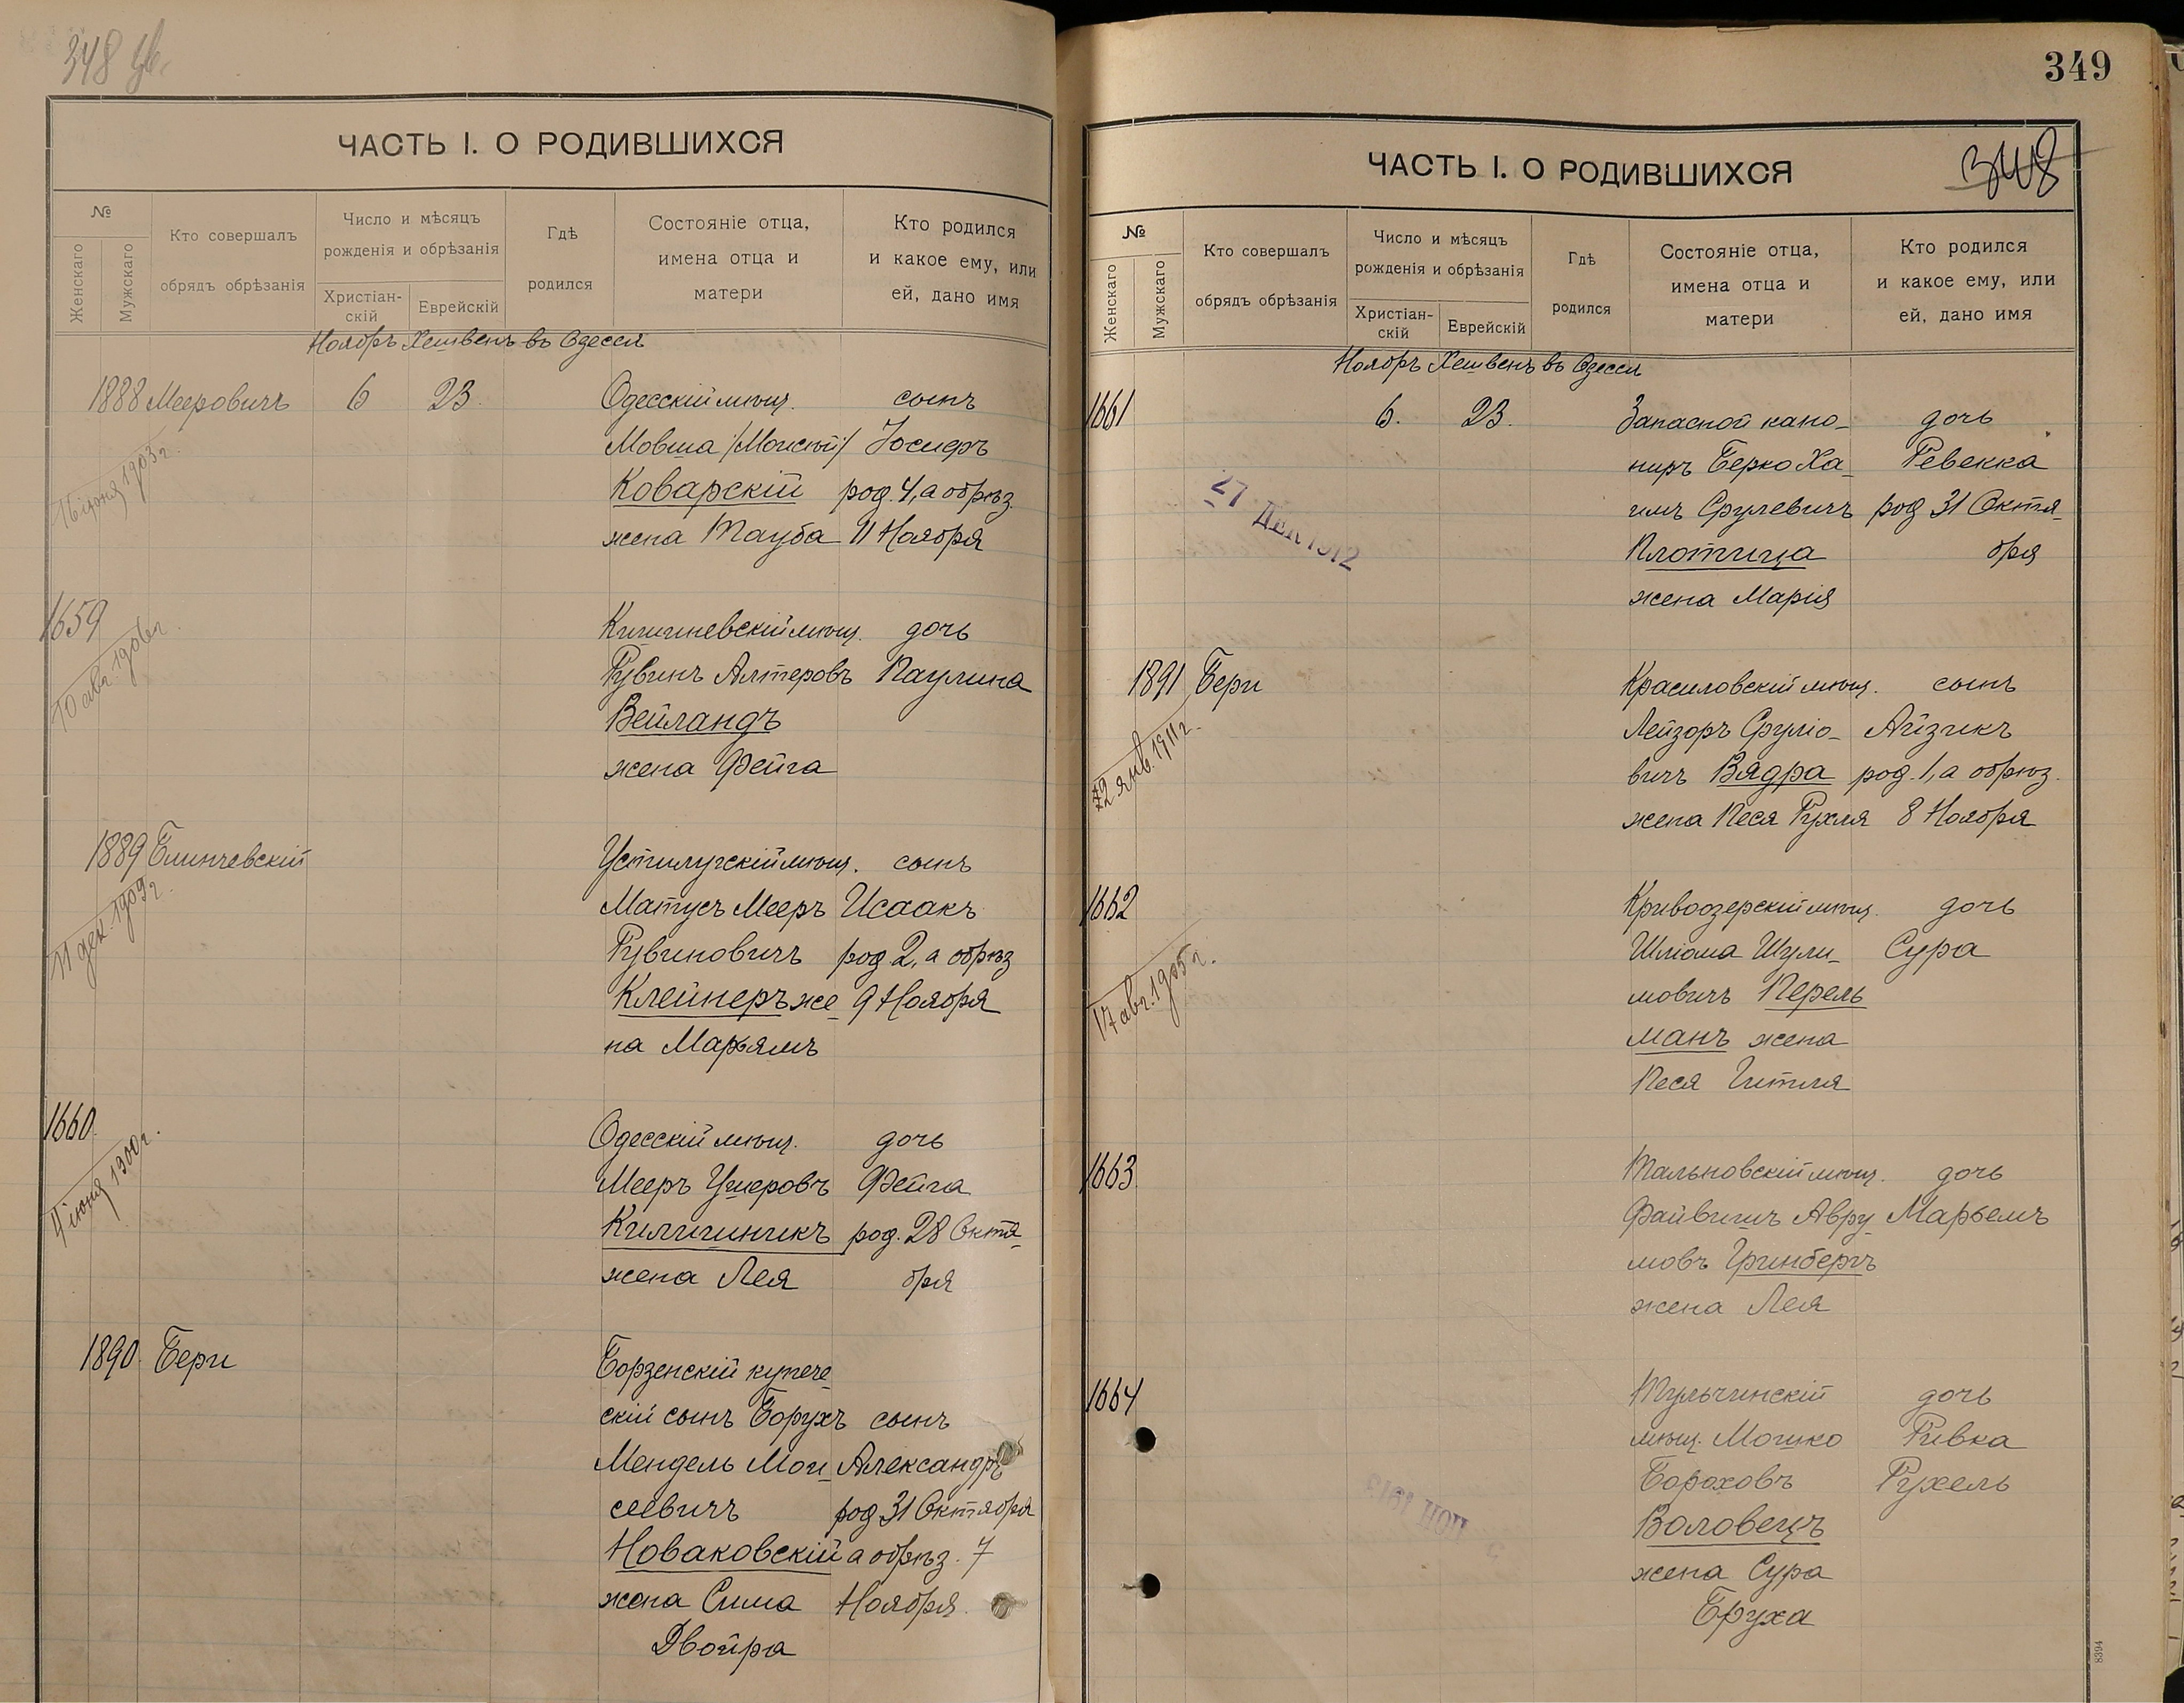 348
ЧАСТЬ I. О РОДИВШИХСЯ
№
Женскаго
Мужскаго
Кто совершалъ
обрядъ обрѣзанія
Число и мѣсяцъ
рожденія и обрѣзанія
Христіан-
скій
Еврейскій
Гдѣ
родился
Состояніе отца,
имена отца и
матери
Кто родился
и какое ему, или
ей, дано имя
Ноябрь Хешвенъ въ Одессѣ
1888 Мееровичъ 6 23. Одесскій мѣщ. сынъ
Мовша /Моисей/ Іосифъ
Коварскій род. 4, а обрѣз.
жена Тауба 11 Ноября
16 іюня 1903 г.
1659 Кишиневскій мѣщ. дочь
Рувинъ Алтеровъ Паулина
Вейландъ
жена Фейга
10 авг. 1906 г.
1889 Блинчевскій Устилугскій мѣщ. сынъ
Матусъ Мееръ Исаакъ
Рувиновичъ род 2, а обрѣз
Клейнеръ же- 9 Ноября
на Марьямъ
11 дек. 1909 г.
1660 Одесскій мѣщ. дочь
Мееръ Ушеровъ Фейга
Килишникъ род. 28 Октя-
жена Лея бря
4 іюня 1900 г.
1890 Бери Борзенскій купече-
скій сынъ Борухъ сынъ
Мендель Мои- Александръ
сеевичъ род 31 Октября
Новаковскій а обрѣз. 7
жена Сима Ноября.
Двойра
349
348
ЧАСТЬ I. О РОДИВШИХСЯ
№
Женскаго
Мужскаго
Кто совершалъ
обрядъ обрѣзанія
Число и мѣсяцъ
рожденія и обрѣзанія
Христіан-
скій
Еврейскій
Гдѣ
родился
Состояніе отца,
имена отца и
матери
Кто родился
и какое ему, или
ей, дано имя
Ноябрь Хешвенъ въ Одессѣ
1661 6. 23. Запасной кано- дочь
ниръ Берко Ха- Ревекка
имъ Срулевичъ род 31 Октя-
Плотица бря
жена Марія
27 ДЕК 1912
1891 Бери Красиловскій мѣщ. сынъ
Лейзоръ Сруліо- Айзикъ
вичъ Вядра род. 1, а обрѣз.
жена Песя Рухля 8 Ноября
22 янв. 1911 г.
1662 Кривоозерскій мѣщ. дочь
Шліома Шули- Сура
мовичъ Перель
манъ жена
Песя Гитля
17 авг. 1905 г.
1663 Тальновскій мѣщ. дочь
Файвишъ Авру- Марьемъ
мовъ Гринбергъ
жена Лея
1664 Тульчинскій дочь
мѣщ. Мошко Ривка
Бороховъ Рухель
Воловецъ
жена Сура
Бруха
8394